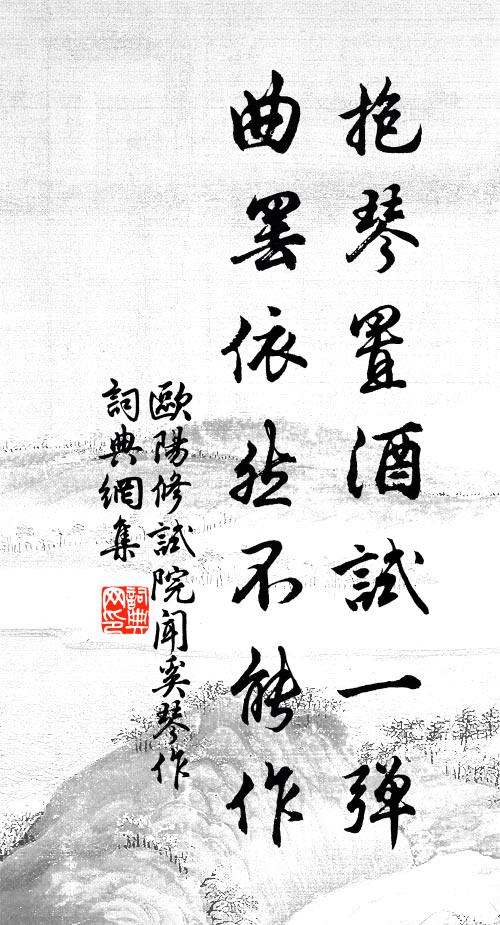 抱琴置酒試一彈
曲罷依然不能作
歐陽修試院聞奚琴作
詞典網集
詞典
网印